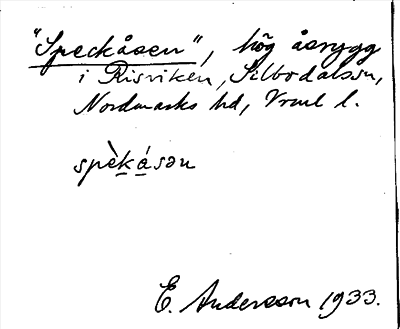 "Speckåsen", hög åsrygg
i Risviken, Silbodalssn,
Nordmarks hd, Vrml l.
spèkásən
E. Andersson 1933.